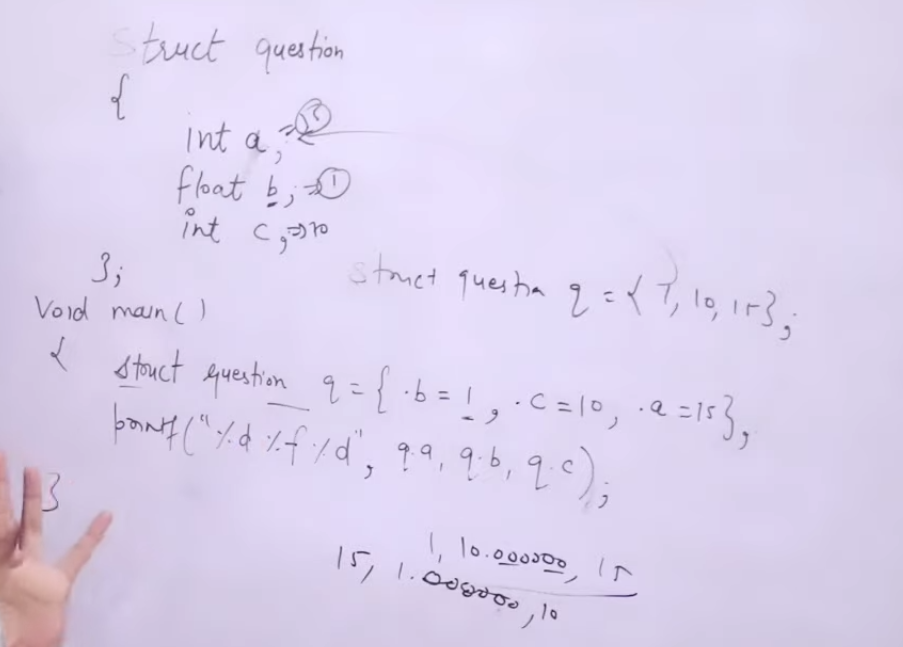 struct question
{
int a; ⇒ 15
float b; ⇒ 1
int c; ⇒ 10
};
struct question q = { 1, 10, 15};
void main()
{ struct question q = { .b = 1, .c = 10, .a = 15};
printf("%d %f %d", q.a, q.b, q.c);
}
1, 10.000000, 15
15, 1.000000, 10